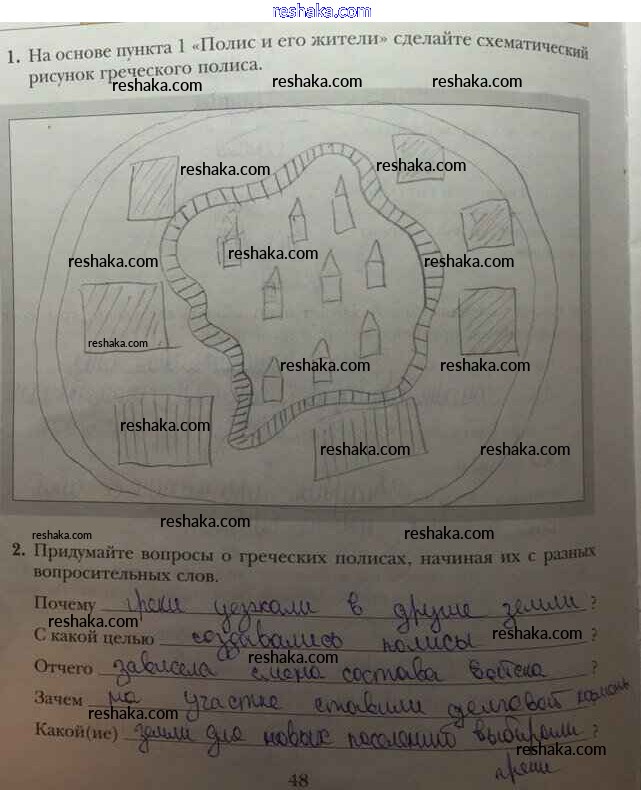 reshaka.com
1. На основе пункта 1 «Полис и его жители» сделайте схематический
рисунок греческого полиса.
reshaka.com reshaka.com reshaka.com
reshaka.com
reshaka.com reshaka.com
reshaka.com reshaka.com reshaka.com
reshaka.com
reshaka.com reshaka.com
reshaka.com reshaka.com reshaka.com
reshaka.com
reshaka.com reshaka.com
2. Придумайте вопросы о греческих полисах, начиная их с разных
вопросительных слов.
Почему греки уезжали в другие земли ?
reshaka.com
С какой целью создавались полисы ?
reshaka.com
reshaka.com
Отчего зависела смена состава войска ?
Зачем на участке ставили долговой камень
reshaka.com reshaka.com
Какой(ие) земли для новых поселений выбирали ?
греки
reshaka.com
48